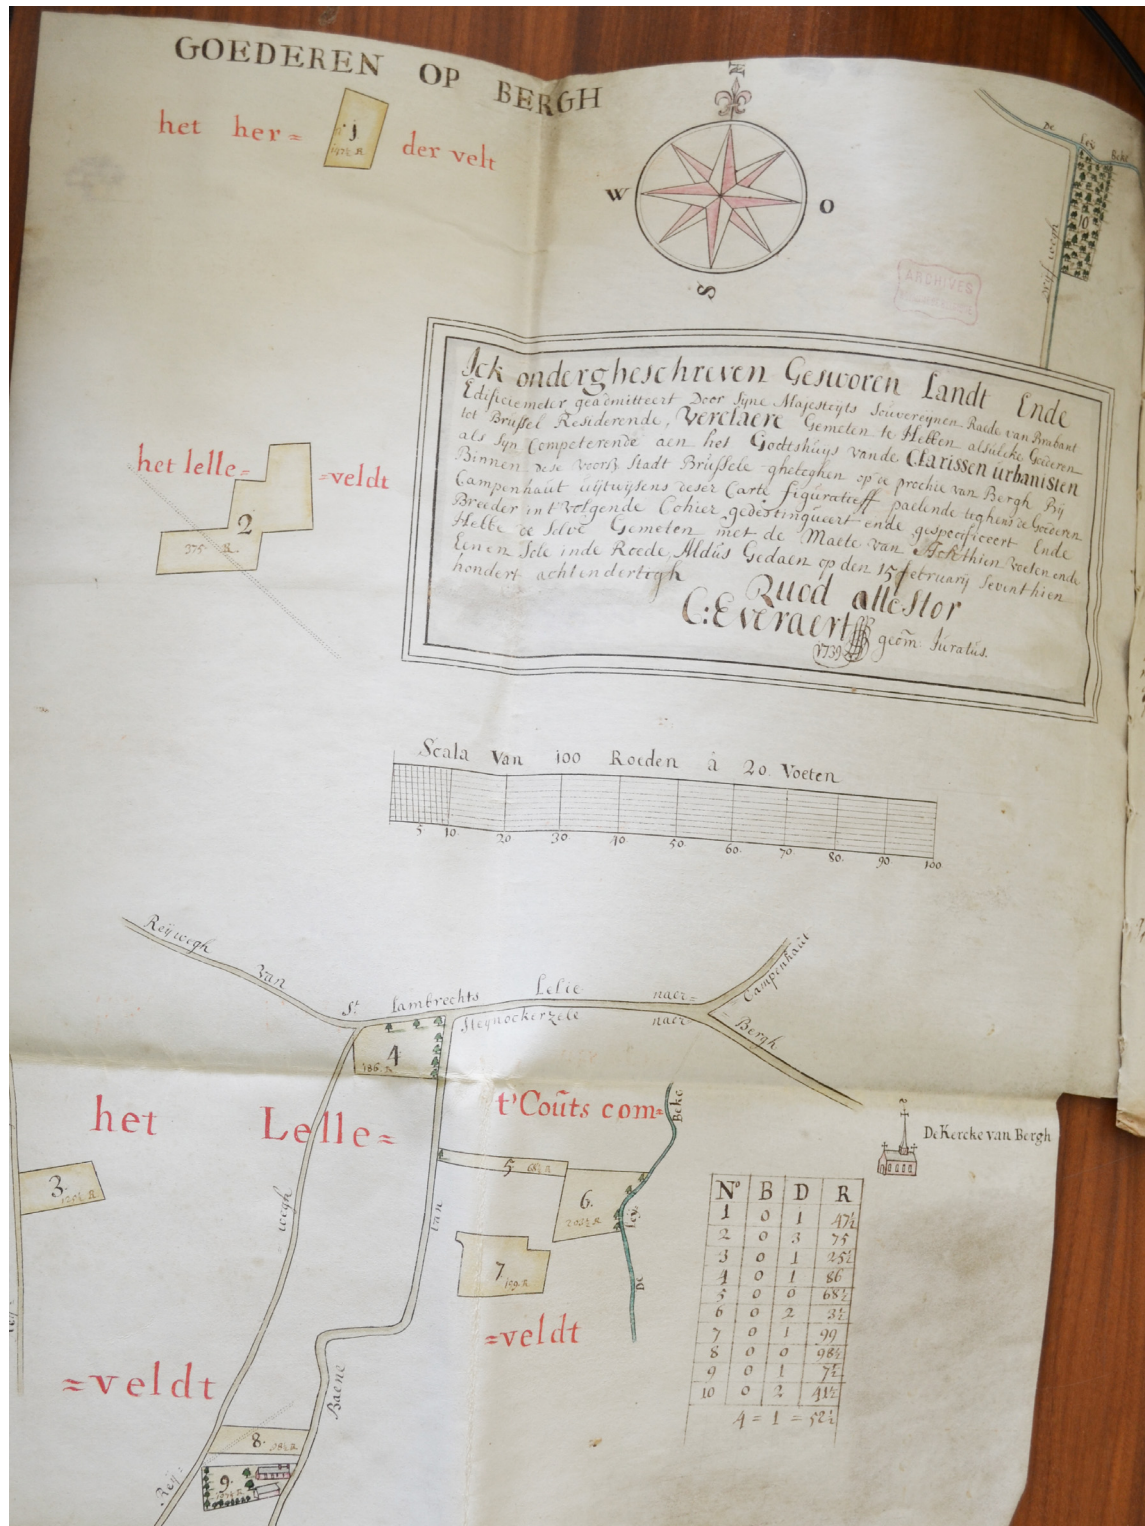 GOEDEREN OP BERGH
het her=
1
147½ R
der velt
N
W
O
S
De Leij Beke
10
drijf wegh
ARCHIVES
Ick onderghescreven Gesworen Landt Ende
Edificiemeter geadmitteert Door Syne Majesteyts Souvereynen Raede van Brabant
tot Brussel Residerende, Verclaere Gemeten te Hebben alsulcke Goederen
als Syn Competerende aen het Godtshuys vande Clarissen urbanisten
Binnen dese voors Stadt Brussele gheleghen op de prochie van Bergh Bij
Campenhaut uijtwijsens deser Carte figuratieff paelende teghens de Goederen
Breeder in t'volgende Cohier gedistingueert ende gespecificeert Ende
Hebbe de Selve Gemeten met de Maete van Achthien voeten ende
Eenen Sele inde Roede, Aldus Gedaen op den 15 februarij Seventhien
hondert achtendertigh
Quod attestor
C: Everaert geom: Juratus.
1739
het lelle=
=veldt
2
375 R.
Scala Van 100 Roeden à 20 Voeten
5 10. 20 30. 40. 50. 60. 70. 80. 90. 100
Reijwegh Van St Lambrechts Lelie
naer= Campenhaut
Steynockerzele
naer= Bergh
4
186. R
het Lelle=
t'Couts com=
Beke
De Kercke van Bergh
3.
125½ R
5 68½ R
6.
203½ R
Leij
De
7
199. R
wegh
van
=veldt
=veldt
Baene
Reij=
8. 98½ R
9.
107½ R
No B D R
1 0 1 47½
2 0 3 75
3 0 1 25½
4 0 1 86
5 0 0 68½
6 0 2 3½
7 0 1 99
8 0 0 98½
9 0 1 7½
10 0 2 41½
4 = 1 = 52½